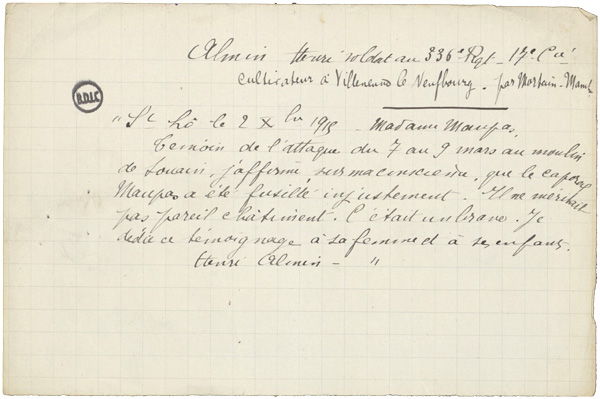 Almin Henri soldat au 336e Rgt - 17e Cie
cultivateur à Villeneuve le Neufbourg - par Mortain - Manche
B.D.I.C
"St Lô le 2 Xbre 1915 - Madame Maupas,
Témoin de l'attaque du 7 au 9 mars au moulin
de Souain, j'affirme, sur ma conscience, que le caporal
Maupas a été fusillé injustement. Il ne méritait
pas pareil châtiment. C'était un brave. Je
dédie ce témoignage à sa femme et à ses enfants.
Henri Almin - "